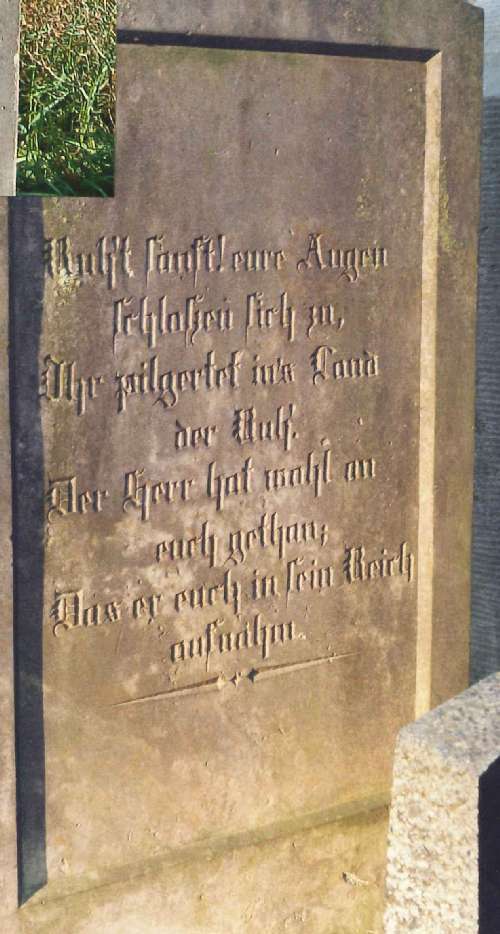 Ruh't sanft! eure Augen
schloßen sich zu,
Ihr pilgertet in's Land
der Ruh'.
Der Herr hat wohl an
euch gethan;
Das er euch in sein Reich
aufnahm.